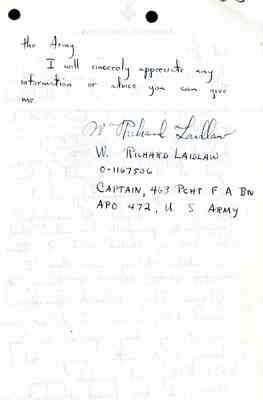 the Army.
I will sincerely appreciate any
information or advice you can give
me.
W Richard Laidlaw
W. RICHARD LAIDLAW
O-1167506
CAPTAIN, 463 PCHT F A BN
APO 472, U S ARMY